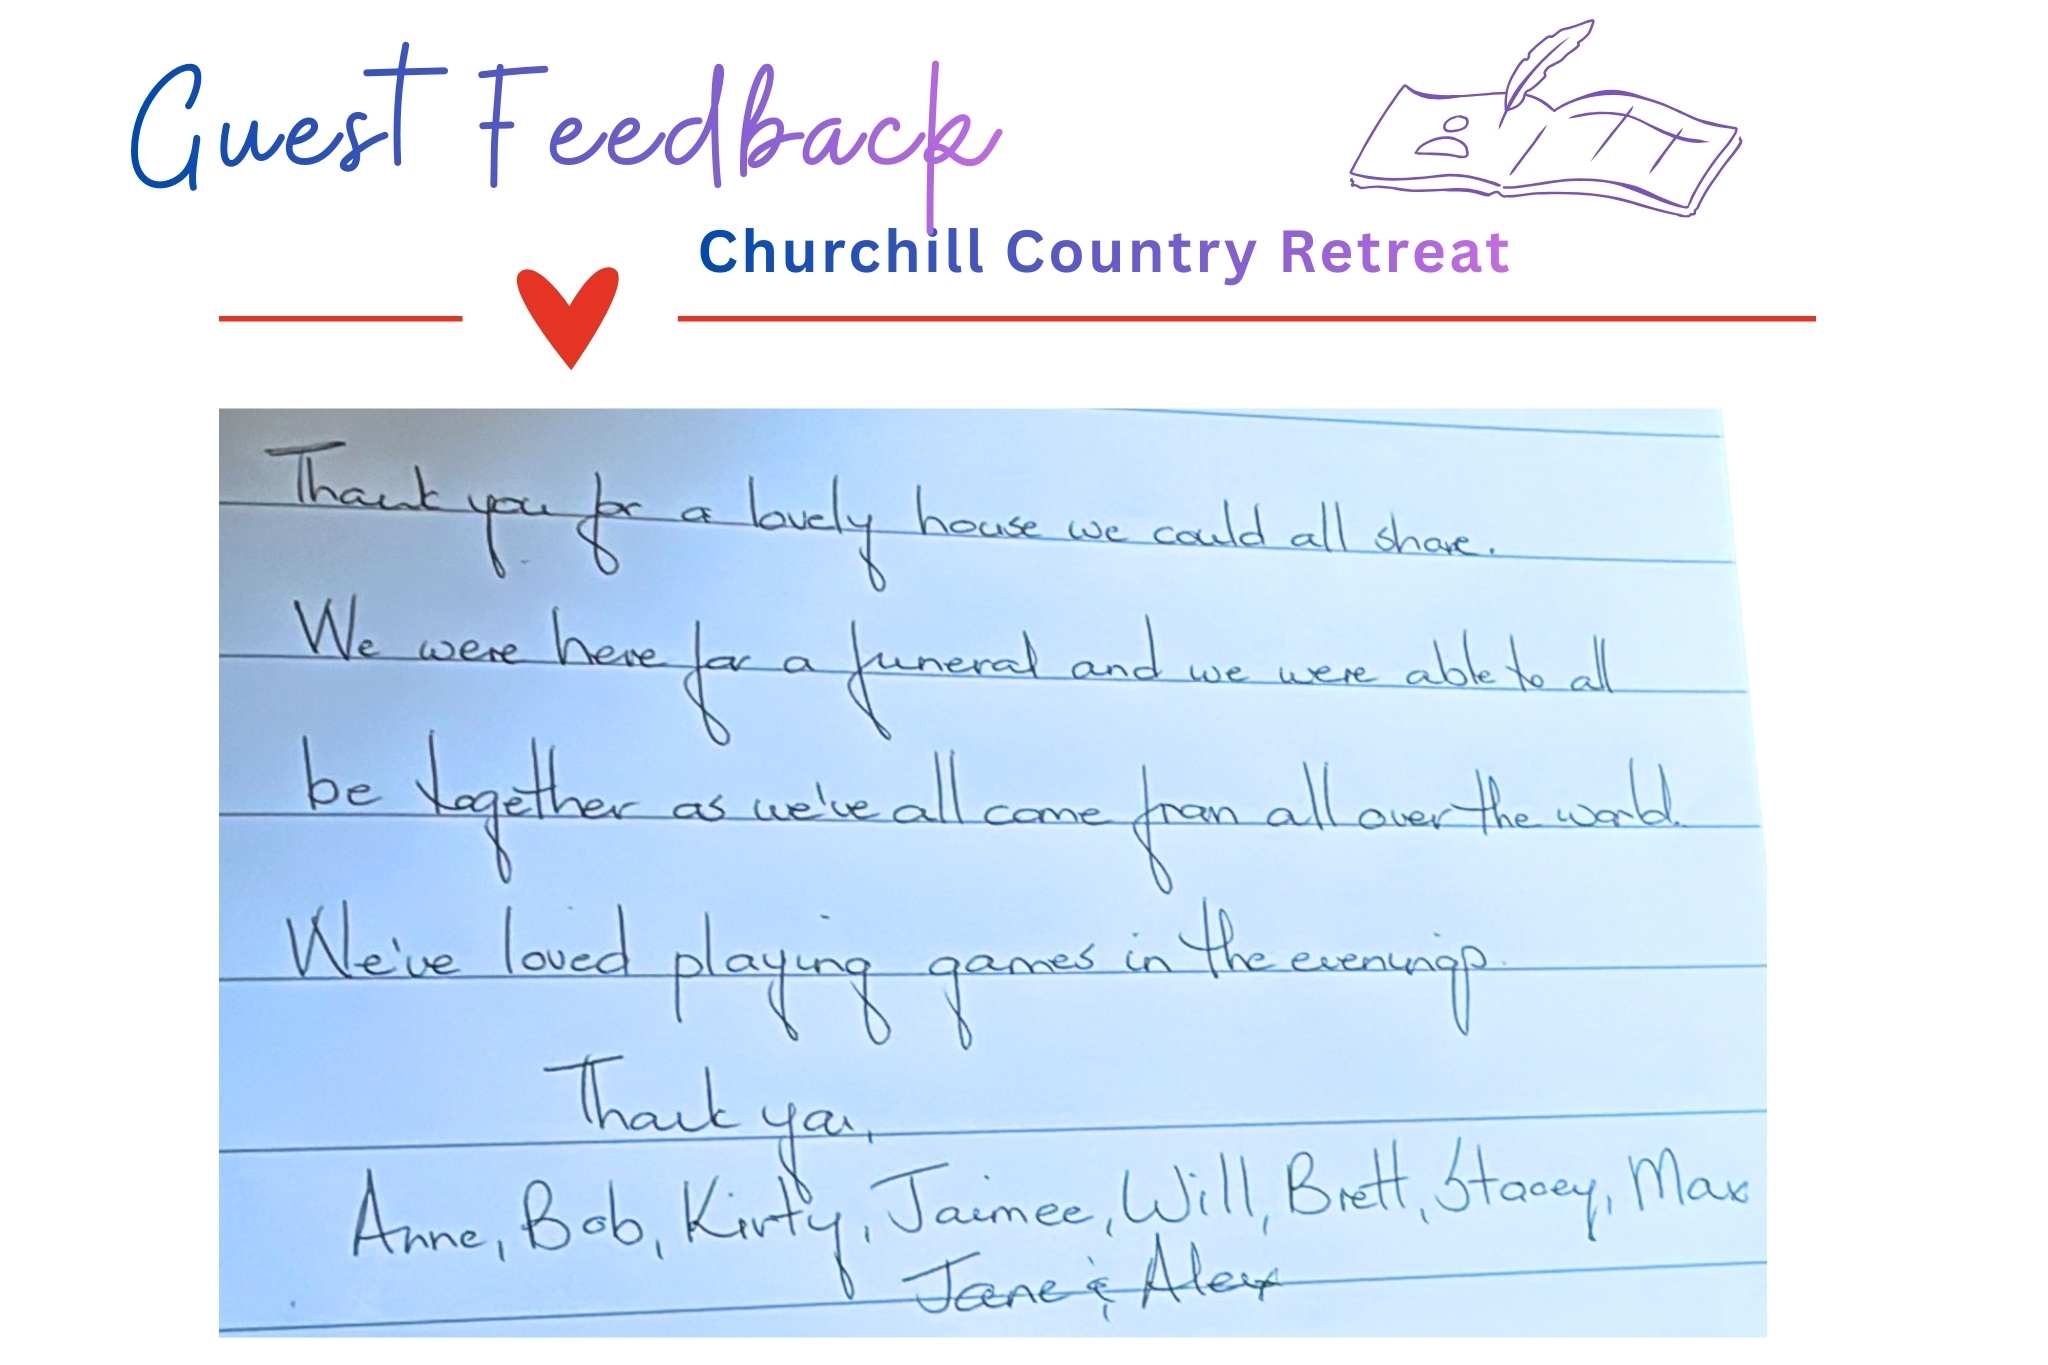 Guest Feedback
Churchill Country Retreat
Thank you for a lovely house we could all share.
We were here for a funeral and we were able to all
be together as we've all come from all over the world.
We've loved playing games in the evenings.
Thank you,
Anne, Bob, Kirty, Jaimee, Will, Brett, Stacey, Max
Jane & Alex